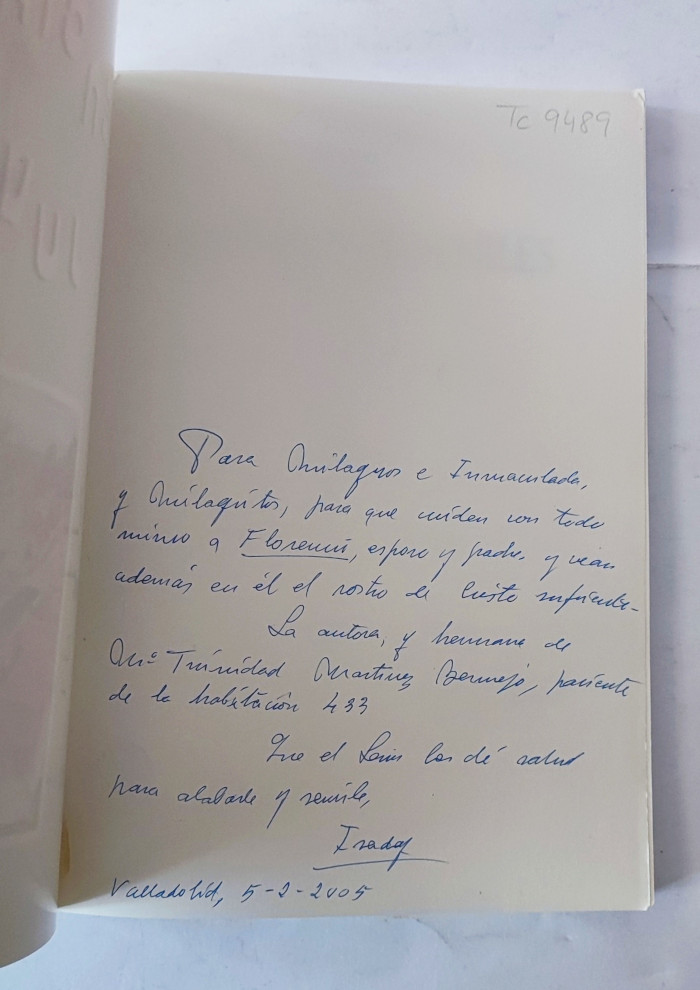 Tc 9489
Para Milagros e Inmaculada,
y Milagritos, para que cuiden con todo
mimo a Florencio, esposo y padre, y vean
además en él el rostro de Cristo sufriente.
La autora, y hermana de
Mª Trinidad Martínez Bermejo, paciente
de la habitación 433
Que el Señor los dé salud
para alabarle y servirle,
Valladolid, 5-2-2005